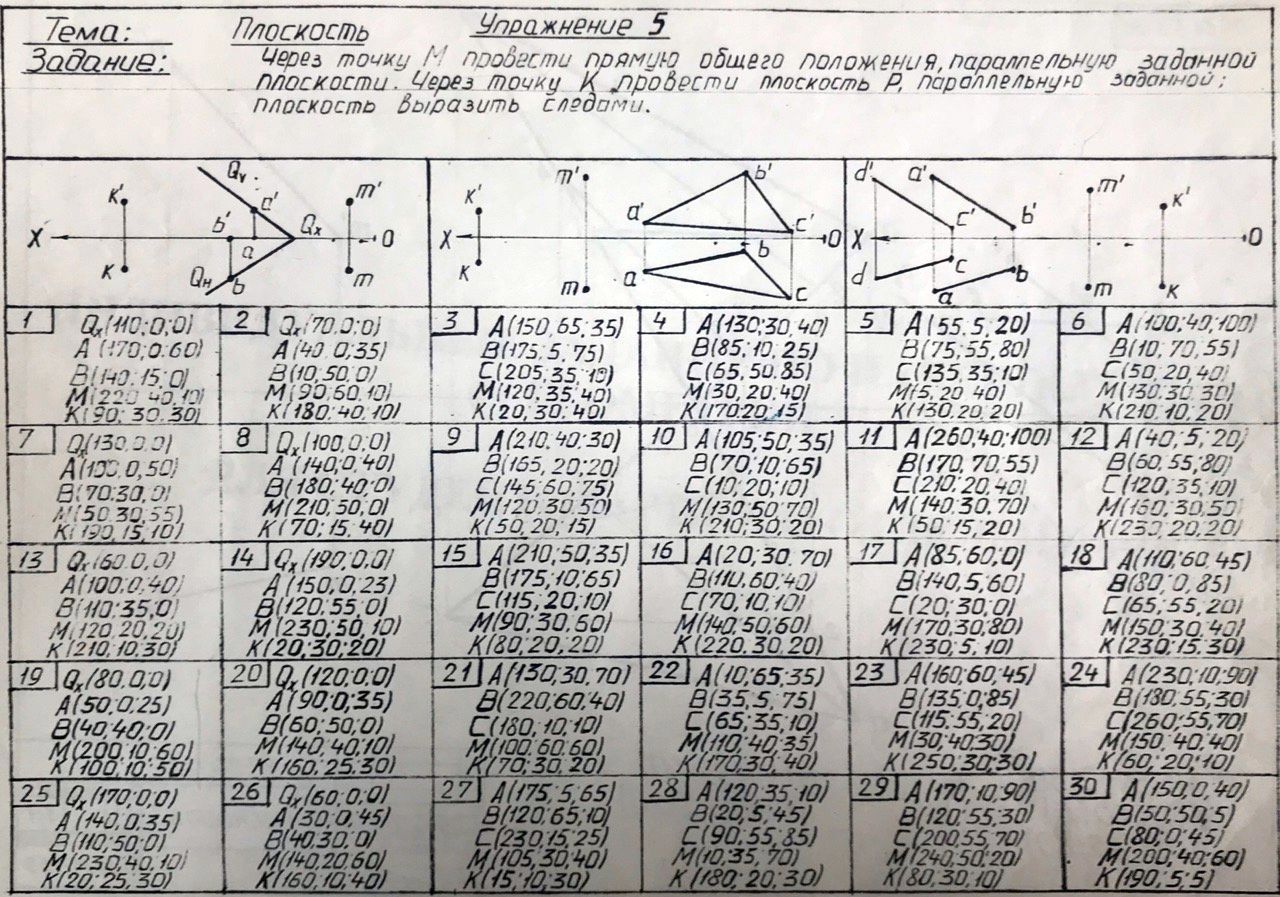 Тема: Плоскость Упражнение 5
Задание: Через точку М провести прямую общего положения, параллельную заданной
плоскости. Через точку К провести плоскость Р, параллельную заданной;
плоскость выразить следами.
k' Qv a' b' m' X a Qx O k Qн b m
m' b' k' a' c' X O k a b m c
d' a' c' b' m' k' X O d c b a m k
1 Qx(110;0;0)
A(170;0;60)
B(140;15;0)
M(220;40;10)
K(90;30;30)
2 Qx(70;0;0)
A(40;0;35)
B(10;50;0)
M(90;60;10)
K(180;40;10)
3 A(150,65,35)
B(175;5,75)
C(205,35,10)
M(120,35,40)
K(20,30;40)
4 A(130;30,40)
B(85;10,25)
C(65,50,85)
M(30,20,40)
K(170;20;15)
5 A(55,5,20)
B(75;55,80)
C(135,35;10)
M(5,20,40)
K(130,20;20)
6 A(100;40;100)
B(10,70,55)
C(50,20,40)
M(130;30;30)
K(210,10,20)
7 Qx(130,0,0)
A(100,0,50)
B(70;30,0)
M(50,30,55)
K(190,15,10)
8 Qx(100,0;0)
A(140;0,40)
B(180;40;0)
M(210;50,0)
K(70;15;40)
9 A(210,40;30)
B(165,20;20)
C(145;60,75)
M(120,30,50)
K(50,20,15)
10 A(105,50,35)
B(70;10;65)
C(10;20;10)
M(130;50;70)
K(210;30,20)
11 A(260;40;100)
B(170,70,55)
C(210;20,40)
M(140,30,70)
K(50;15,20)
12 A(40;5,20)
B(60,55;80)
C(120,35,10)
M(160,30,50)
K(230,20,20)
13 Qx(60,0,0)
A(100;0,40)
B(110;35,0)
M(120,20,20)
K(210;10;30)
14 Qx(190,0;0)
A(150,0;23)
B(120;55;0)
M(230,50,10)
K(20;30;20)
15 A(210,50,35)
B(175;10;65)
C(115,20;10)
M(90;30,60)
K(80,20;20)
16 A(20;30,70)
B(110,60;40)
C(70;10;10)
M(140;50;60)
K(220,30,20)
17 A(85;60,0)
B(140,5,60)
C(20;30;0)
M(170,30;80)
K(230;5,10)
18 A(110;60,45)
B(80;0,85)
C(65;55,20)
M(150,30,40)
K(230;15,30)
19 Qx(80,0;0)
A(50;0;25)
B(40;40;0)
M(200;10;60)
K(100,10;50)
20 Qx(120;0;0)
A(90;0;35)
B(60;50;0)
M(140;40;10)
K(160;25;30)
21 A(130;30,70)
B(220;60,40)
C(180;10;10)
M(100,60;60)
K(70;30,20)
22 A(10;65;35)
B(35,5,75)
C(65;35;10)
M(110;40;35)
K(170;30,40)
23 A(160;60;45)
B(135,0;85)
C(115;55,20)
M(30;40;30)
K(250,30;30)
24 A(230,10;90)
B(180,55;30)
C(260;55,70)
M(150,40,40)
K(60;20;10)
25 Qx(170;0;0)
A(140,0;35)
B(110;50;0)
M(230;40;10)
K(20;25,30)
26 Qx(60;0;0)
A(30;0,45)
B(40;30,0)
M(140,20,60)
K(160,10,40)
27 A(175,5,65)
B(120;65;10)
C(230,15,25)
M(105,30;40)
K(15,10,30)
28 A(120,35,10)
B(20;5,45)
C(90,55;85)
M(10,35,70)
K(180;20;30)
29 A(170,10,90)
B(120;55;30)
C(200;55,70)
M(240;50;20)
K(80,30;10)
30 A(150,0,40)
B(50;50;5)
C(80;0;45)
M(200;40;60)
K(190;5;5)